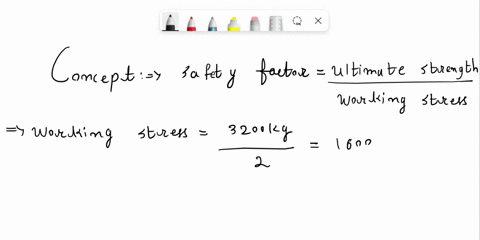 Concept :⇒ Safety factor = Ultimate strength / Working stress
⇒ Working stress = 3200kg / 2 = 1600